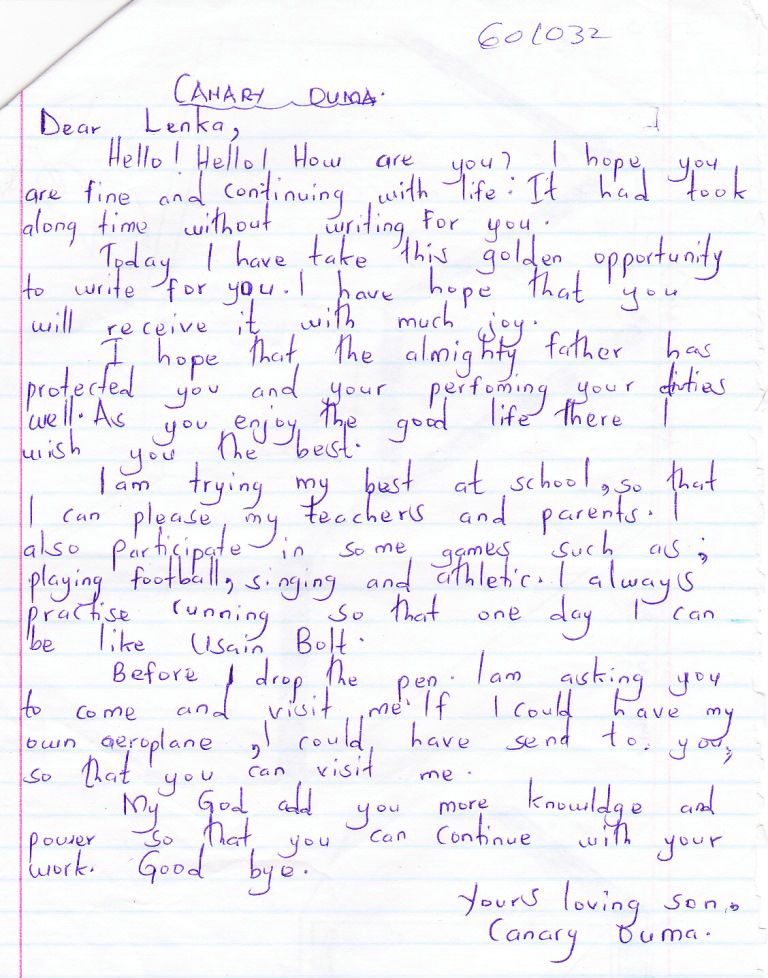 601032
CANARY OUMA.
Dear Lenka,
Hello! Hello! How are you? I hope you
are fine and continuing with life. It had took
along time without writing for you.
Today I have take this golden opportunity
to write for you. I have hope that you
will receive it with much joy.
I hope that the almighty father has
protected you and your perfoming your duties
well. As you enjoy the good life there I
wish you the best.
Iam trying my best at school, so that
I can please my teachers and parents. I
also participate in some games such as;
playing football, singing and athletic. I always
practise running so that one day I can
be like Usain Bolt.
Before I drop the pen. Iam asking you
to come and visit me. If I could have my
own aeroplane, I could have send to you,
so that you can visit me.
My God add you more knowldge and
power so that you can continue with your
work. Good bye.
Yours loving son,
Canary Ouma.